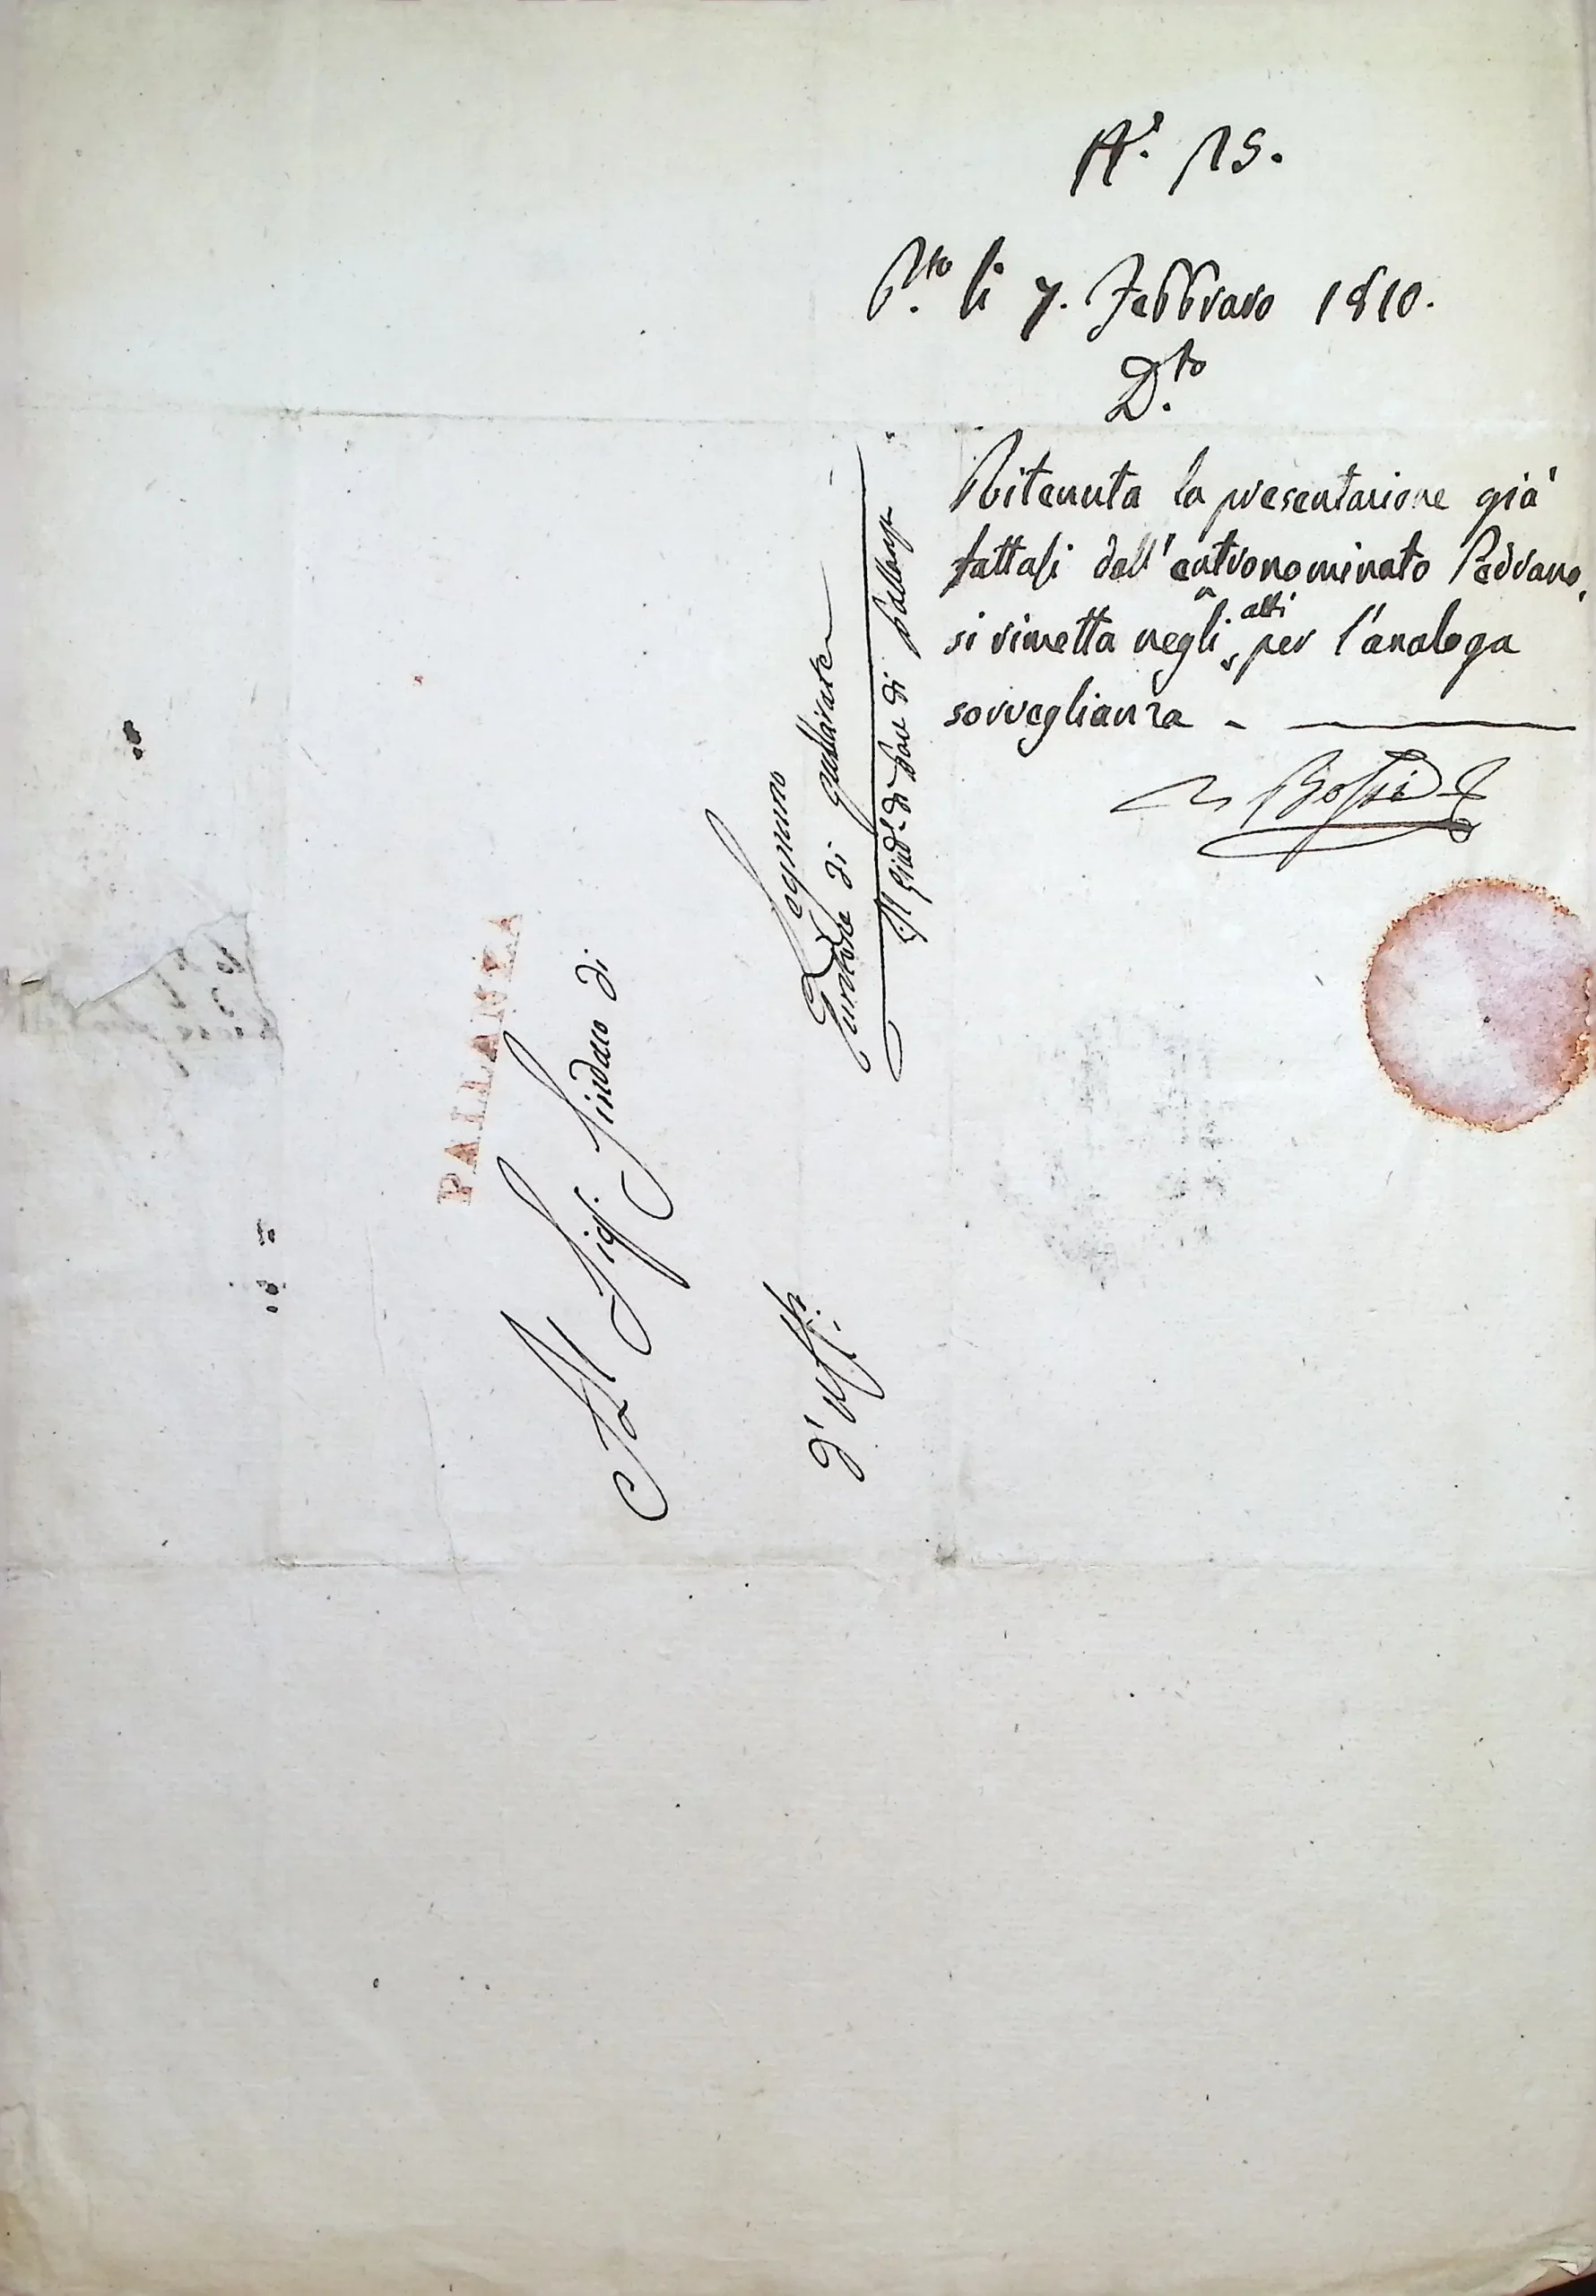 N.° 15.
P.to li 7. Febbraro 1810.
D.to
Ritenuta la presentazione già
fattasi dall'entronominato Pedrano,
si rimetta negli atti per l'analoga
sorveglianza - 
Bossi
PALLANZA
Al Sig.r Sindaco di
Legnano
d'uff.o
di Gallarate
Il Giud.e di Pace di Pallanza